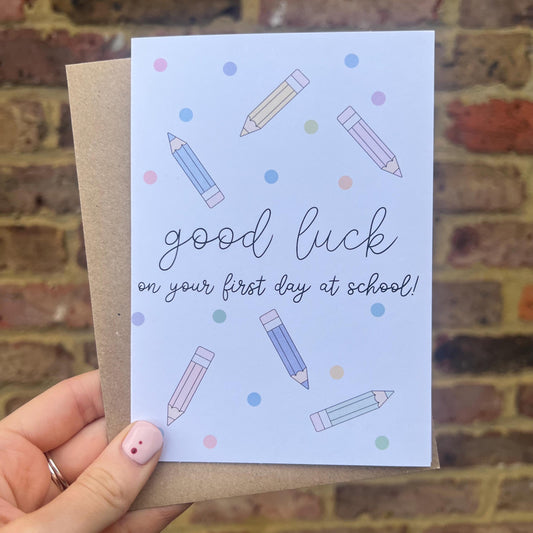 good luck
on your first day at school!